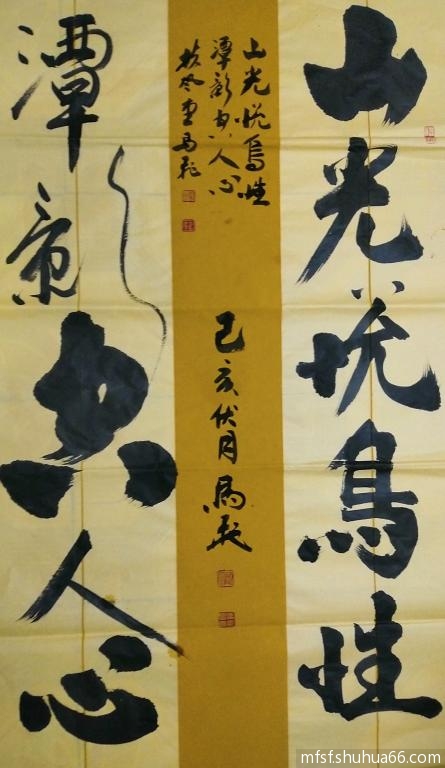 山光悦鳥性
潭影空人心
山光悦鸟性
潭影空人心
己亥伏月馬
mfsf.shuhua66.com